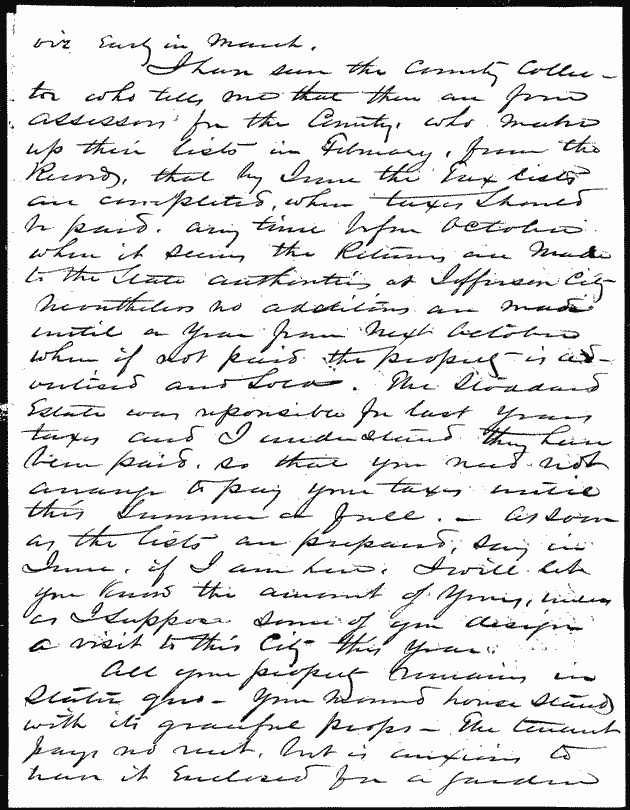 viz Early in March.
I have seen the County Collec-
tor who tells me that there are four
assessors for the County, who make
up their lists in February, from the
Records, that by June the Tax lists
are completed, when taxes should
be paid. any time before October
when it seems the Returns are made
to the State authorities at Jefferson City
Nevertheless no additions are made
until a year from next October
when if not paid the property is ad-
vertised and Sold. The Stoddard
Estate was reponsible for last years
taxes and I understand they have
been paid. so that you need not
arrange to pay your taxes until
this Summer or Fall. - As soon
as the lists are prepared, say in
June, if I am here. I will let
you know the amount of yours, unless
as I suppose some of you design
a visit to this City this Year.
All your property remains in
Statu quo - Your Mound house stands
with its graceful props - The tenant
pays no rent, but is anxious to
have it Enclosed for a garden